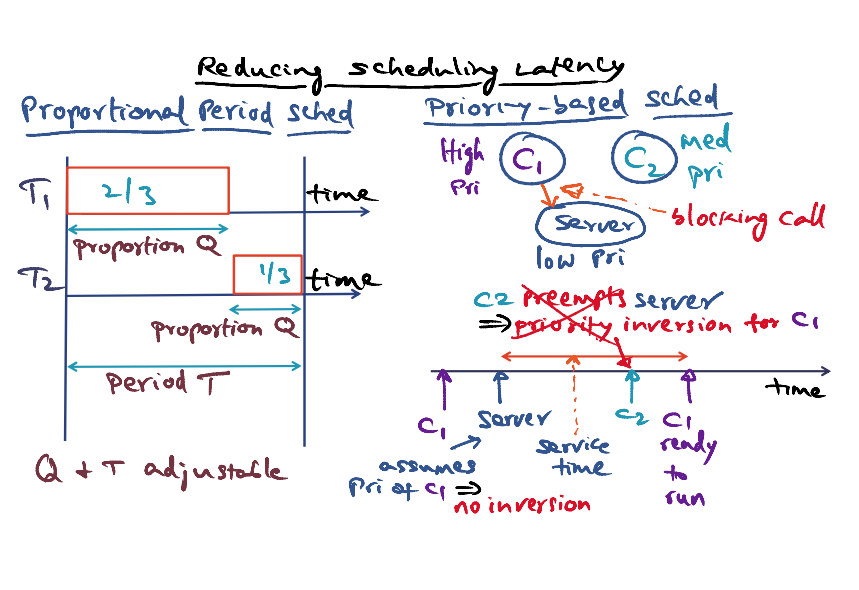 Reducing scheduling Latency
Proportional Period sched
T1
2/3
time
proportion Q
T2
1/3
time
proportion Q
period T
Q + T adjustable
Priority-based sched
High
Pri
C1
C2
med
pri
server
blocking call
low pri
C2 preempts server
⇒ priority inversion for C1
time
C1
server
C2
C1
ready
to
run
service
time
assumes
Pri of C1 ⇒
no inversion